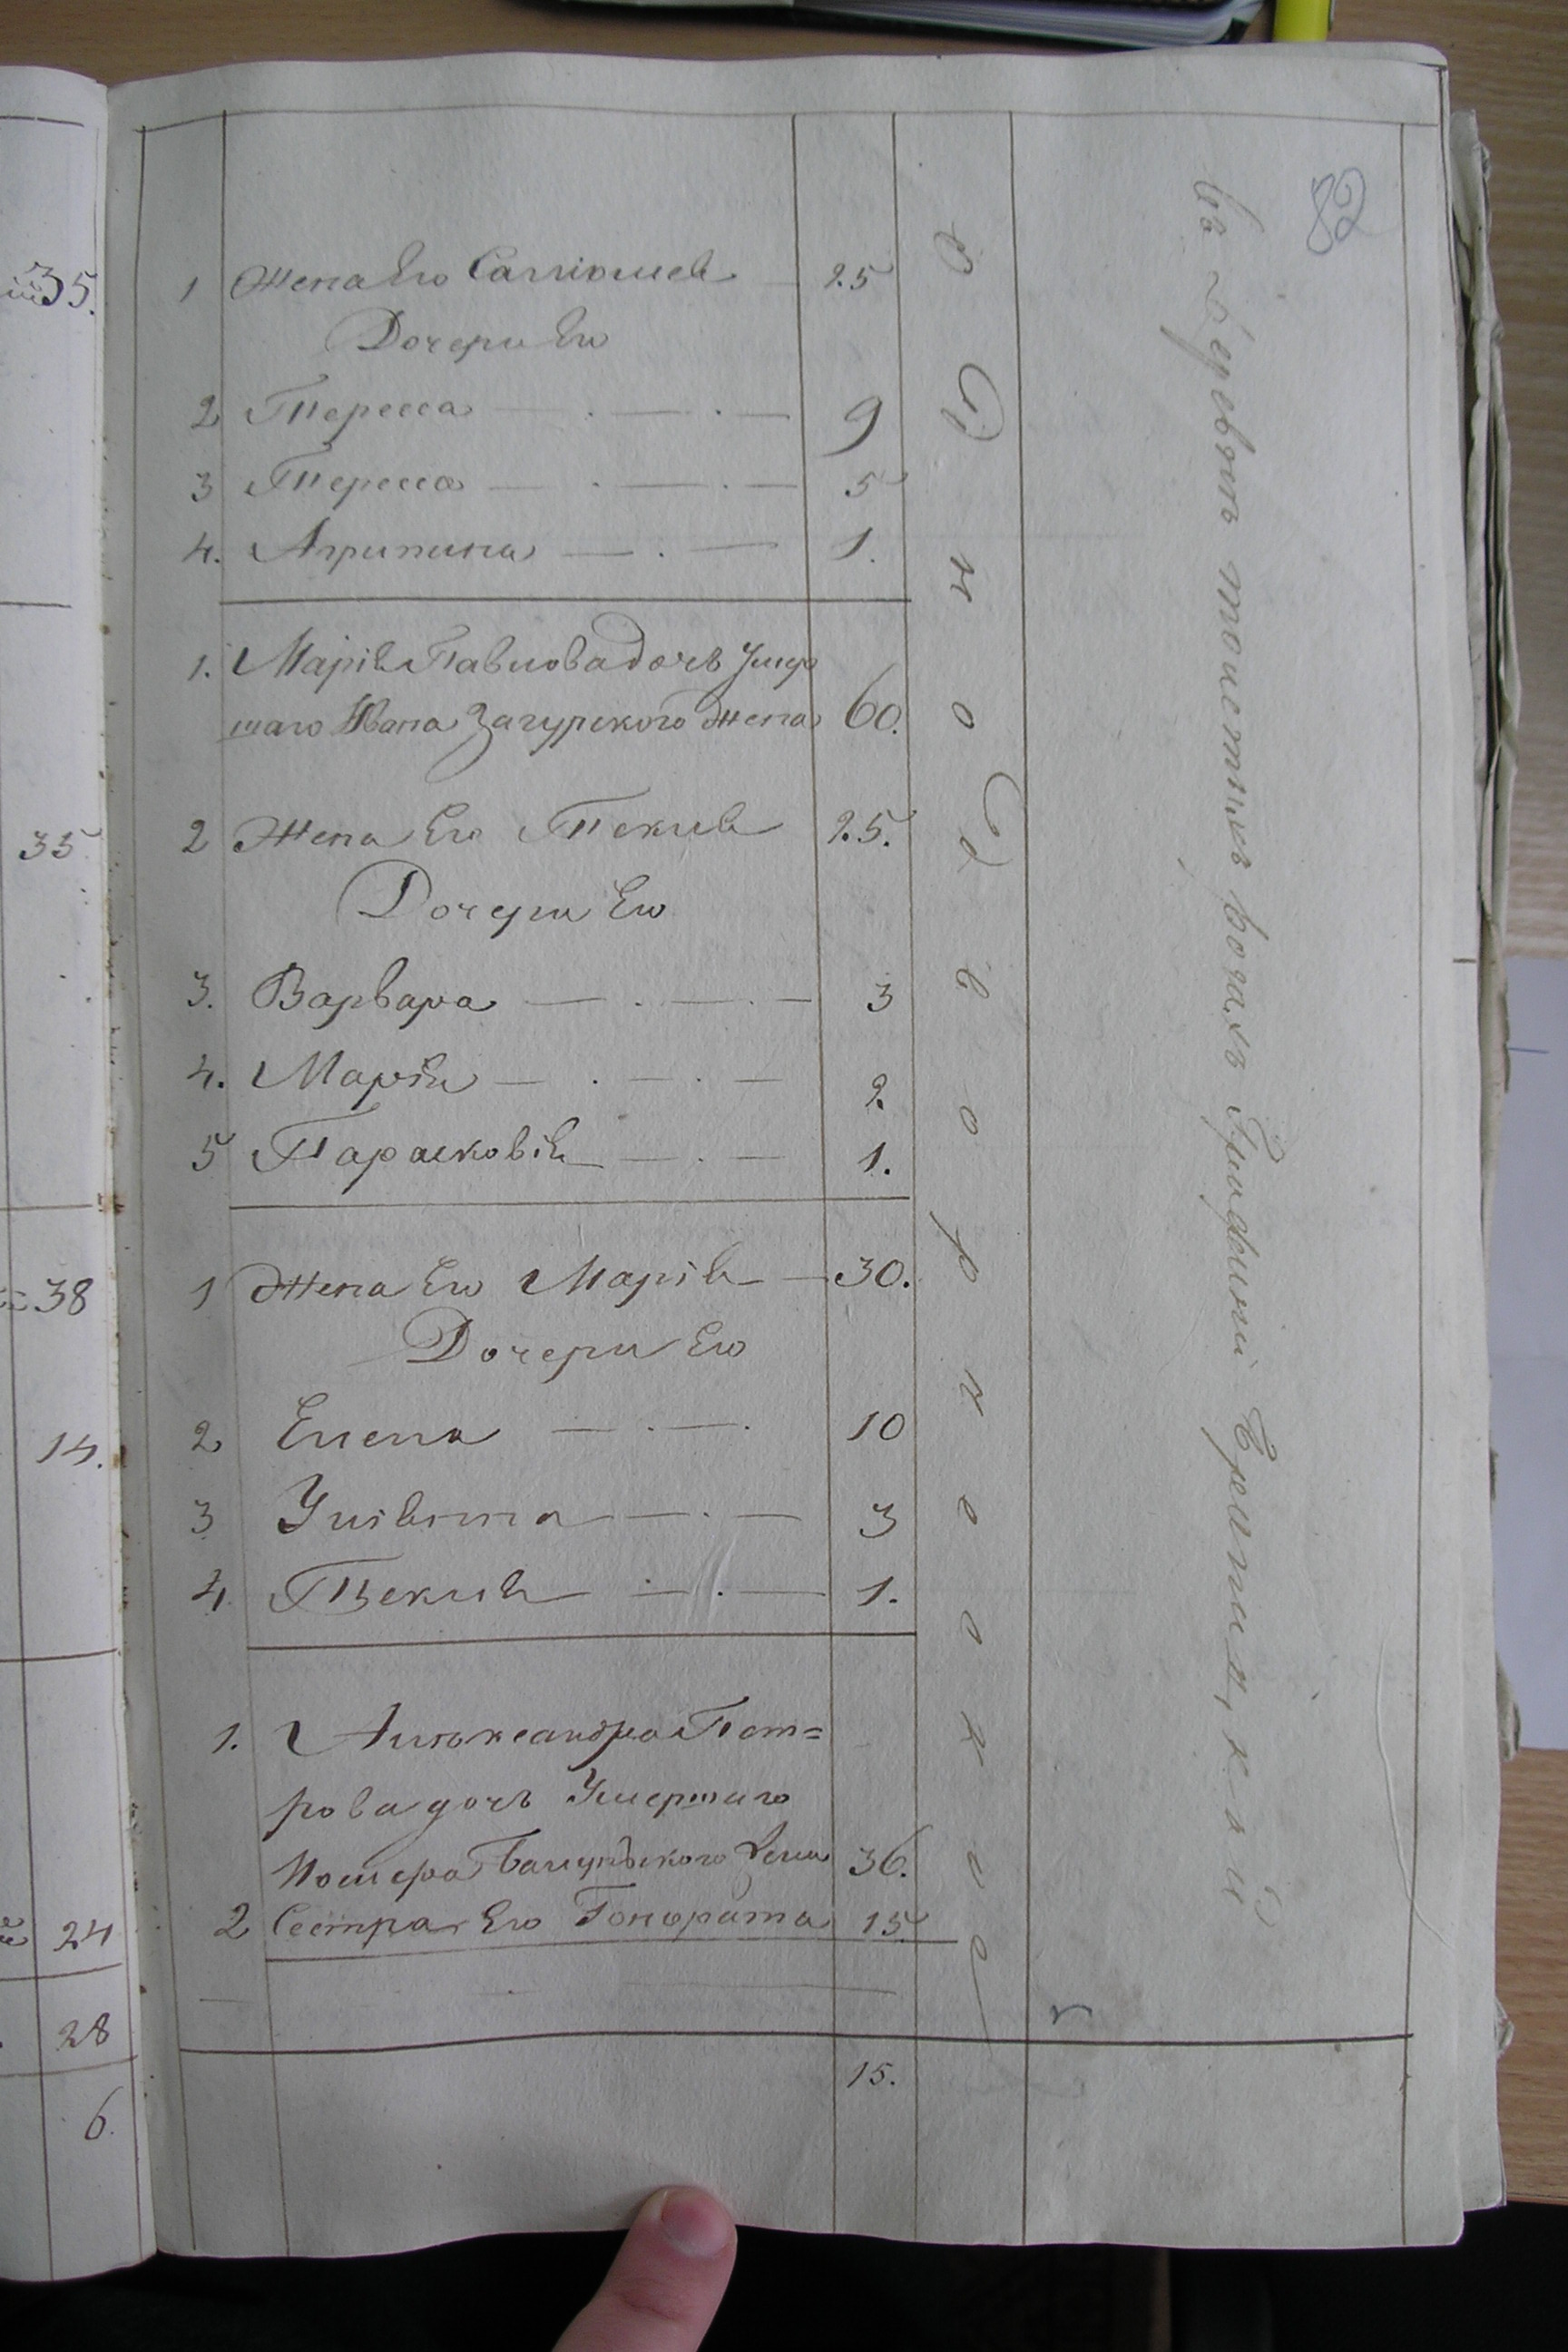 82
1 Жена Его Саллiомея 25
Дочери Его
2 Тересса 9
3 Тересса 5
4. Агрипина 1.
1. Марiя Павлова дочь Умер
шаго Ивана Загурского жена 60.
2 Жена Его Текля 25.
Дочери Его
3. Варвара 3
4. Марiя 2.
5 Парасковiя 1.
1 Жена Его Марiя 30.
Дочери Его
2 Елена 10
3 Улiянна 3
4. Текля 1.
1. Альжександра Пет=
рова дочь Умершаго
36.
2 Сестра Его Гонората 15
15.
Однодворческое
въ
35.
35
38
14.
24
28
6.